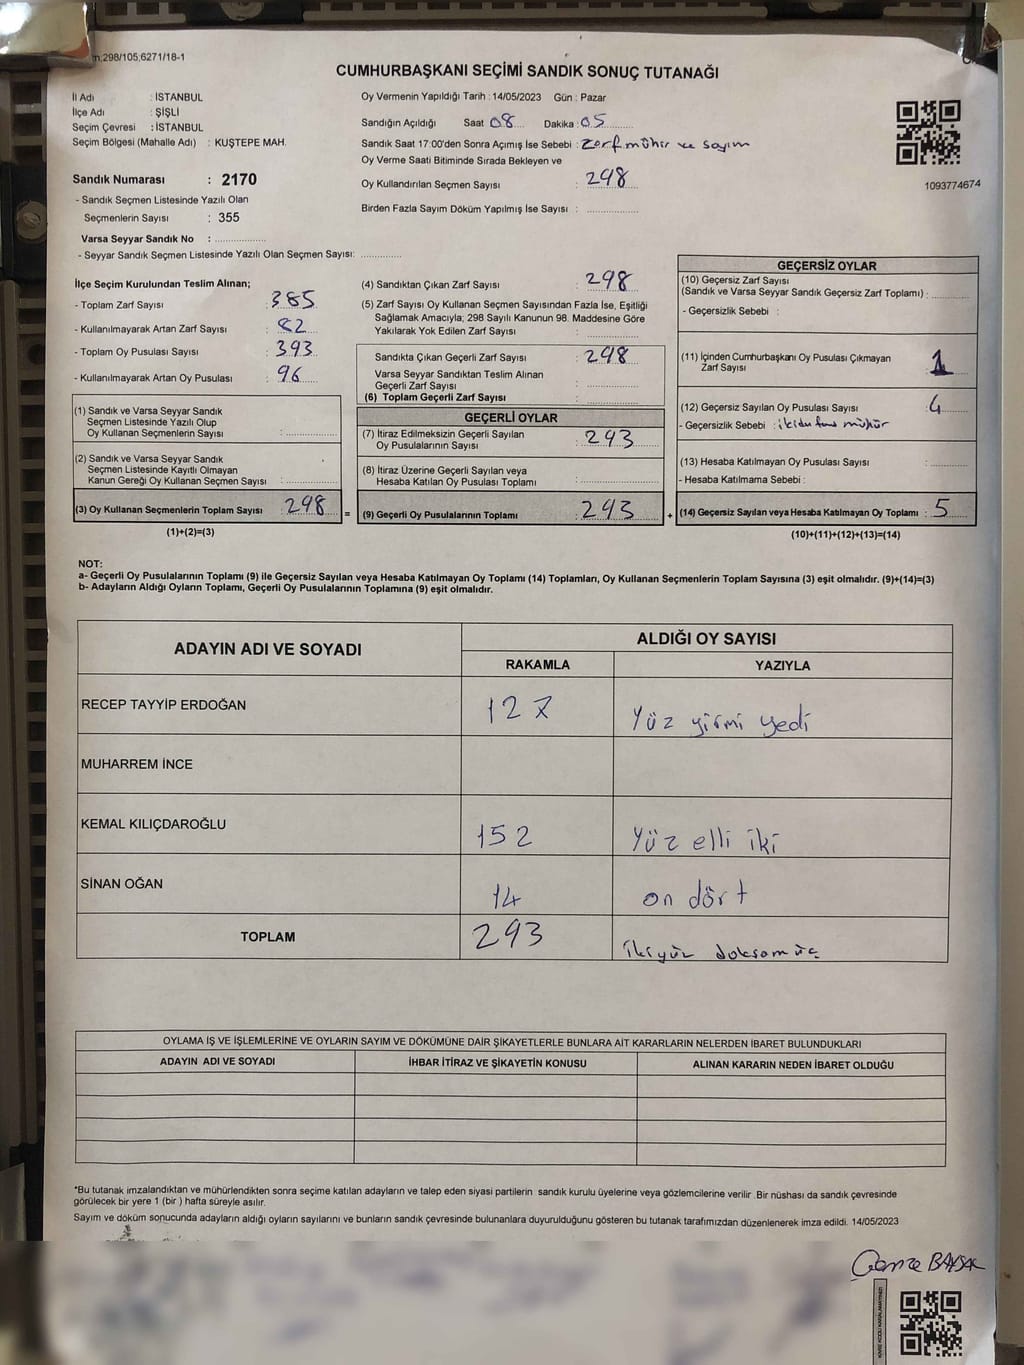 n:298/105,6271/18-1
CUMHURBAŞKANI SEÇİMİ SANDIK SONUÇ TUTANAĞI
İl Adı : İSTANBUL
İlçe Adı : ŞİŞLİ
Seçim Çevresi : İSTANBUL
Seçim Bölgesi (Mahalle Adı) : KUŞTEPE MAH.
Oy Vermenin Yapıldığı Tarih : 14/05/2023 Gün : Pazar
Sandığın Açıldığı Saat 08 Dakika : 05
Sandık Saat 17:00'den Sonra Açımış İse Sebebi : Zarf mühür ve sayım
Oy Verme Saati Bitiminde Sırada Bekleyen ve
Oy Kullandırılan Seçmen Sayısı : 298
Birden Fazla Sayım Döküm Yapılmış İse Sayısı :
1093774674
Sandık Numarası : 2170
- Sandık Seçmen Listesinde Yazılı Olan
Seçmenlerin Sayısı : 355
Varsa Seyyar Sandık No :
- Seyyar Sandık Seçmen Listesinde Yazılı Olan Seçmen Sayısı:
İlçe Seçim Kurulundan Teslim Alınan;
- Toplam Zarf Sayısı : 385
- Kullanılmayarak Artan Zarf Sayısı : 82
- Toplam Oy Pusulası Sayısı : 393
- Kullanılmayarak Artan Oy Pusulası : 96
(1) Sandık ve Varsa Seyyar Sandık
Seçmen Listesinde Yazılı Olup
Oy Kullanan Seçmenlerin Sayısı :
(2) Sandık ve Varsa Seyyar Sandık
Seçmen Listesinde Kayıtlı Olmayan
Kanun Gereği Oy Kullanan Seçmen Sayısı :
(3) Oy Kullanan Seçmenlerin Toplam Sayısı : 298 =
(1)+(2)=(3)
(4) Sandıktan Çıkan Zarf Sayısı : 298
(5) Zarf Sayısı Oy Kullanan Seçmen Sayısından Fazla İse, Eşitliği
Sağlamak Amacıyla; 298 Sayılı Kanunun 98. Maddesine Göre
Yakılarak Yok Edilen Zarf Sayısı :
Sandıkta Çıkan Geçerli Zarf Sayısı : 298
Varsa Seyyar Sandıktan Teslim Alınan
Geçerli Zarf Sayısı :
(6) Toplam Geçerli Zarf Sayısı :
GEÇERLİ OYLAR
(7) İtiraz Edilmeksizin Geçerli Sayılan
Oy Pusulalarının Sayısı : 293
(8) İtiraz Üzerine Geçerli Sayılan veya
Hesaba Katılan Oy Pusulası Toplamı :
(9) Geçerli Oy Pusulalarının Toplamı : 293 +
GEÇERSİZ OYLAR
(10) Geçersiz Zarf Sayısı
(Sandık ve Varsa Seyyar Sandık Geçersiz Zarf Toplamı) :
- Geçersizlik Sebebi :
(11) İçinden Cumhurbaşkanı Oy Pusulası Çıkmayan
Zarf Sayısı : 1
(12) Geçersiz Sayılan Oy Pusulası Sayısı : 4
- Geçersizlik Sebebi : mühür
(13) Hesaba Katılmayan Oy Pusulası Sayısı :
- Hesaba Katılmama Sebebi :
(14) Geçersiz Sayılan veya Hesaba Katılmayan Oy Toplamı : 5
(10)+(11)+(12)+(13)=(14)
NOT:
a- Geçerli Oy Pusulalarının Toplamı (9) ile Geçersiz Sayılan veya Hesaba Katılmayan Oy Toplamı (14) Toplamları, Oy Kullanan Seçmenlerin Toplam Sayısına (3) eşit olmalıdır. (9)+(14)=(3)
b- Adayların Aldığı Oyların Toplamı, Geçerli Oy Pusulalarının Toplamına (9) eşit olmalıdır.
ADAYIN ADI VE SOYADI
ALDIĞI OY SAYISI
RAKAMLA YAZIYLA
RECEP TAYYİP ERDOĞAN 127 Yüz yirmi yedi
MUHARREM İNCE
KEMAL KILIÇDAROĞLU 152 Yüz elli iki
SİNAN OĞAN 14 on dört
TOPLAM 293 ikiyüz doksan üç
OYLAMA İŞ VE İŞLEMLERİNE VE OYLARIN SAYIM VE DÖKÜMÜNE DAİR ŞİKAYETLERLE BUNLARA AİT KARARLARIN NELERDEN İBARET BULUNDUKLARI
ADAYIN ADI VE SOYADI İHBAR İTİRAZ VE ŞİKAYETİN KONUSU ALINAN KARARIN NEDEN İBARET OLDUĞU
*Bu tutanak imzalandıktan ve mühürlendikten sonra seçime katılan adayların ve talep eden siyasi partilerin sandık kurulu üyelerine veya gözlemcilerine verilir. Bir nüshası da sandık çevresinde
görülecek bir yere 1 (bir) hafta süreyle asılır.
Sayım ve döküm sonucunda adayların aldığı oyların sayılarını ve bunların sandık çevresinde bulunanlara duyurulduğunu gösteren bu tutanak tarafımızdan düzenlenerek imza edildi. 14/05/2023